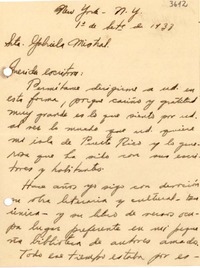 3642
New York - N.Y.
1º de Sete de 1933
Srta. Gabriela Mistral.
Querida escritora:
Permítame dirigirme a ud. en
esta forma, porque cariño y gratitud
muy grande es lo que siento por ud.
sé de lo mucho que ud. quiere
mi isla de Puerto Rico y lo gene-
rosa que ha sido con sus escri-
tores y habitantes.
Hace años yo sigo con devoción
su obra literaria y cultural. Sea
única - y su libro de recados ocu-
pa lugar preferente en mi peque-
ña biblioteca de autores amados.
Todo ese tiempo estaba por es-